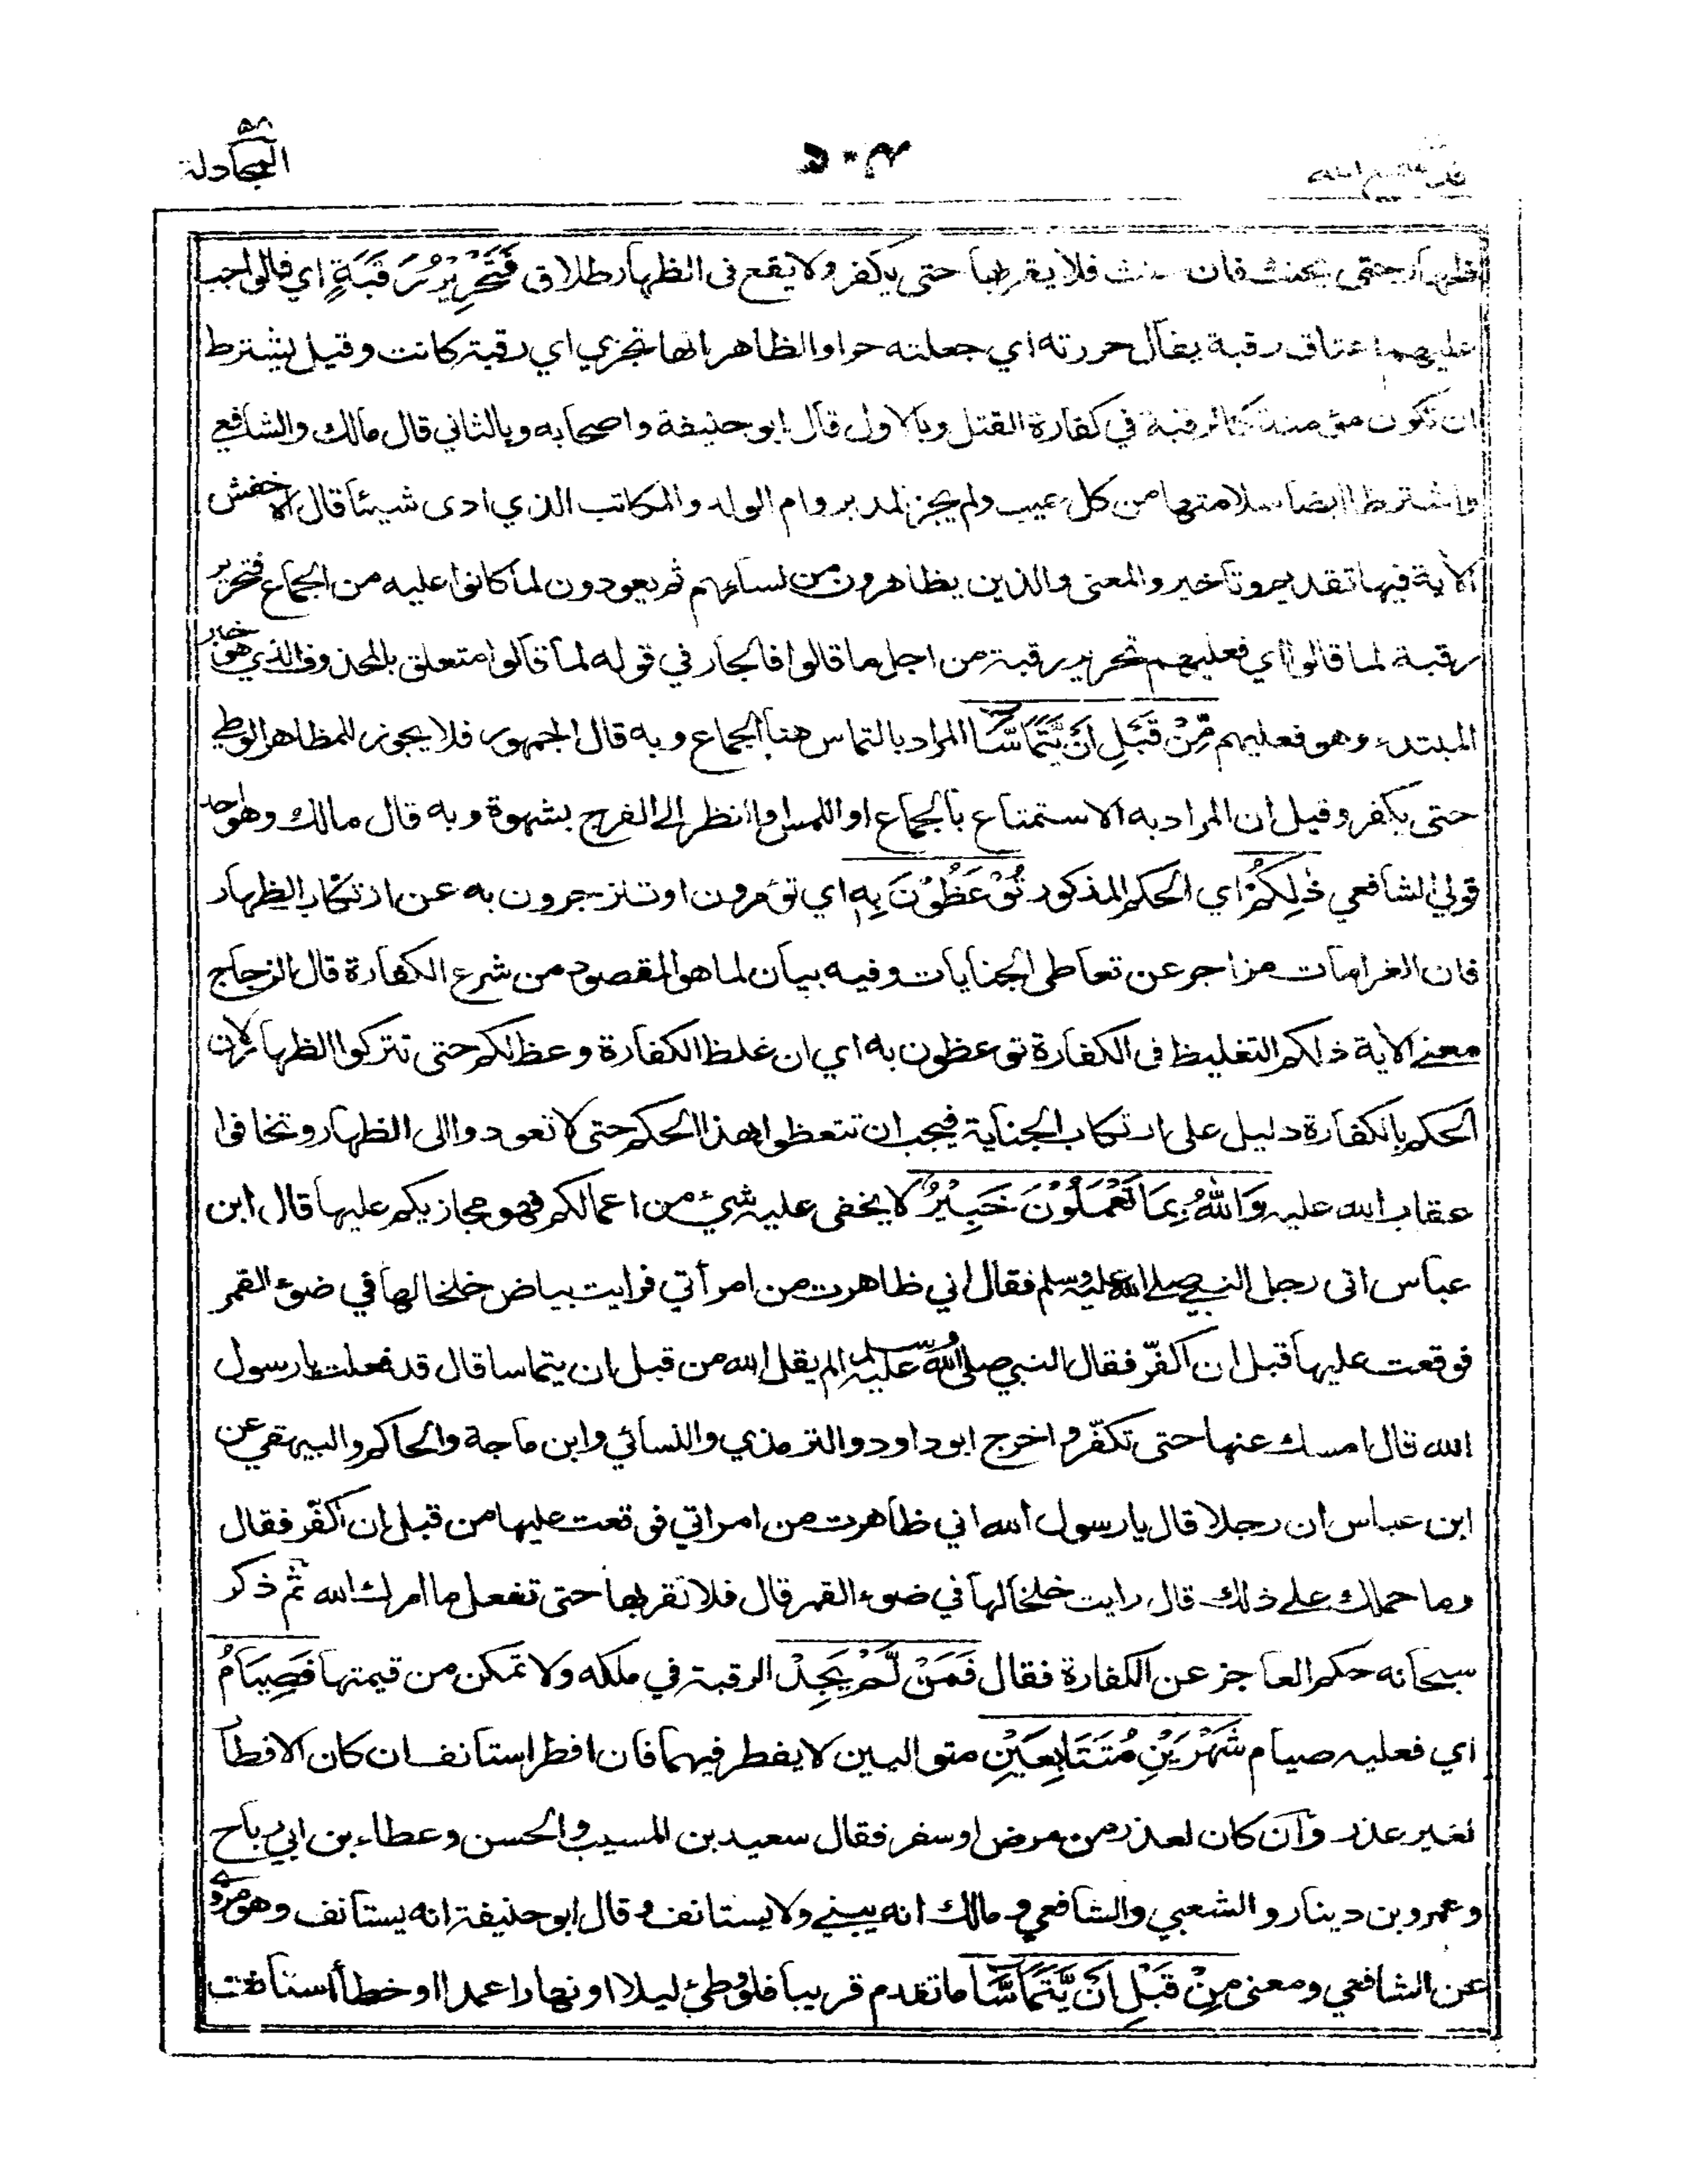 قد سمع الله
٥٠٣
٥٨
المجادلة
ظهار حتى يحنث فان حنث فلا يقربها حتى يكفر ولا يقع فى الظهار طلاق فَتَحْرِيْرُ رَقَبَةٍ اي فالواجب
عليهم اعتاق رقبة يقال حررته اي جعلته حرا والظاهر انها تجزي اي رقبة كانت وقيل يشترط
ان تكون مؤمنة كالرقبة في كفارة القتل وبالاول قال ابو حنيفة واصحابه وبالثاني قال مالك والشافعي
واشترطا ايضا سلامتها من كل عيب ولم يجز المدبر وام الولد والمكاتب الذي ادى شيئا قال الاخفش
الآية فيها تقديم وتاخير والمعنى والذين يظاهرون من نسائهم ثم يعودون لما كانوا عليه من الجماع فتحرير
رقبة لما قالوا اي فعليهم تحرير رقبة من اجل ما قالوا فالجار في قوله لما قالوا متعلق بالمحذوف الذي هو خبر
المبتدء وهو فعليهم مِّنْ قَبْلِ اَنْ يَّتَمَاۤسَّا المراد بالتماس هنا الجماع وبه قال الجمهور فلا يجوز للمظاهر الوطي
حتى يكفر وقيل ان المراد به الاستمتاع بالجماع او اللمس او النظر الى الفرج بشهوة وبه قال مالك وهو احد
قولي الشافعي ذٰلِكُمْ اي الحكم المذكور تُوْعَظُوْنَ بِهٖ اي تؤمرون او تنزجرون به عن ارتكاب الظهار
فان الغرامات مزاجر عن تعاطي الجنايات وفيه بيان لما هو المقصود من شرع الكفارة قال الزجاج
معنى الآية ذلكم التغليظ فى الكفارة توعظون به اي ان غلظ الكفارة وعظ لكم حتى تتركوا الظهار لان
الحكم بالكفارة دليل على ارتكاب الجناية فيجب ان تتعظوا بهذا الحكم حتى لا تعودوا الى الظهار وتخافوا
عقاب الله عليه وَاللّٰهُ بِمَا تَعْمَلُوْنَ خَبِيْرٌ لا يخفى عليه شيء من اعمالكم فهو مجازيكم عليها قال ابن
عباس اتى رجل النبي صلى الله عليه وسلم فقال اني ظاهرت من امرأتي فرايت بياض خلخالها في ضوء القمر
فوقعت عليها قبل ان اكفّر فقال النبي صلى الله عليه وسلم الم يقل الله من قبل ان يتماسا قال قد فعلت يا رسول
الله قال امسك عنها حتى تكفّر واخرج ابو داود والترمذي والنسائي وابن ماجة والحاكم والبيهقي عن
ابن عباس ان رجلا قال يا رسول الله اني ظاهرت من امراتي فوقعت عليها من قبل ان اكفّر فقال
وما حملك على ذلك قال رايت خلخالها في ضوء القمر قال فلا تقربها حتى تفعل ما امرك الله ثم ذكر
سبحانه حكم العاجز عن الكفارة فقال فَمَنْ لَّمْ يَجِدْ الرقبة في ملكه ولا تمكن من قيمتها فَصِيَامُ
اي فعليه صيام شَهْرَيْنِ مُتَتَابِعَيْنِ متواليين لا يفطر فيهما فان افطر استأنف ان كان الافطا
لغير عذر وان كان لعذر من مرض او سفر فقال سعيد بن المسيب والحسن وعطاء بن ابي رباح
وعمرو بن دينار والشعبي والشافعي ومالك انه يبني ولا يستانف وقال ابو حنيفة انه يستأنف وهو مروي
عن الشافعي ومعنى مِنْ قَبْلِ اَنْ يَّتَمَاۤسَّا ما تقدم قريبا فلو وطئ ليلا او نهارا عمدا او خطأ استأنف